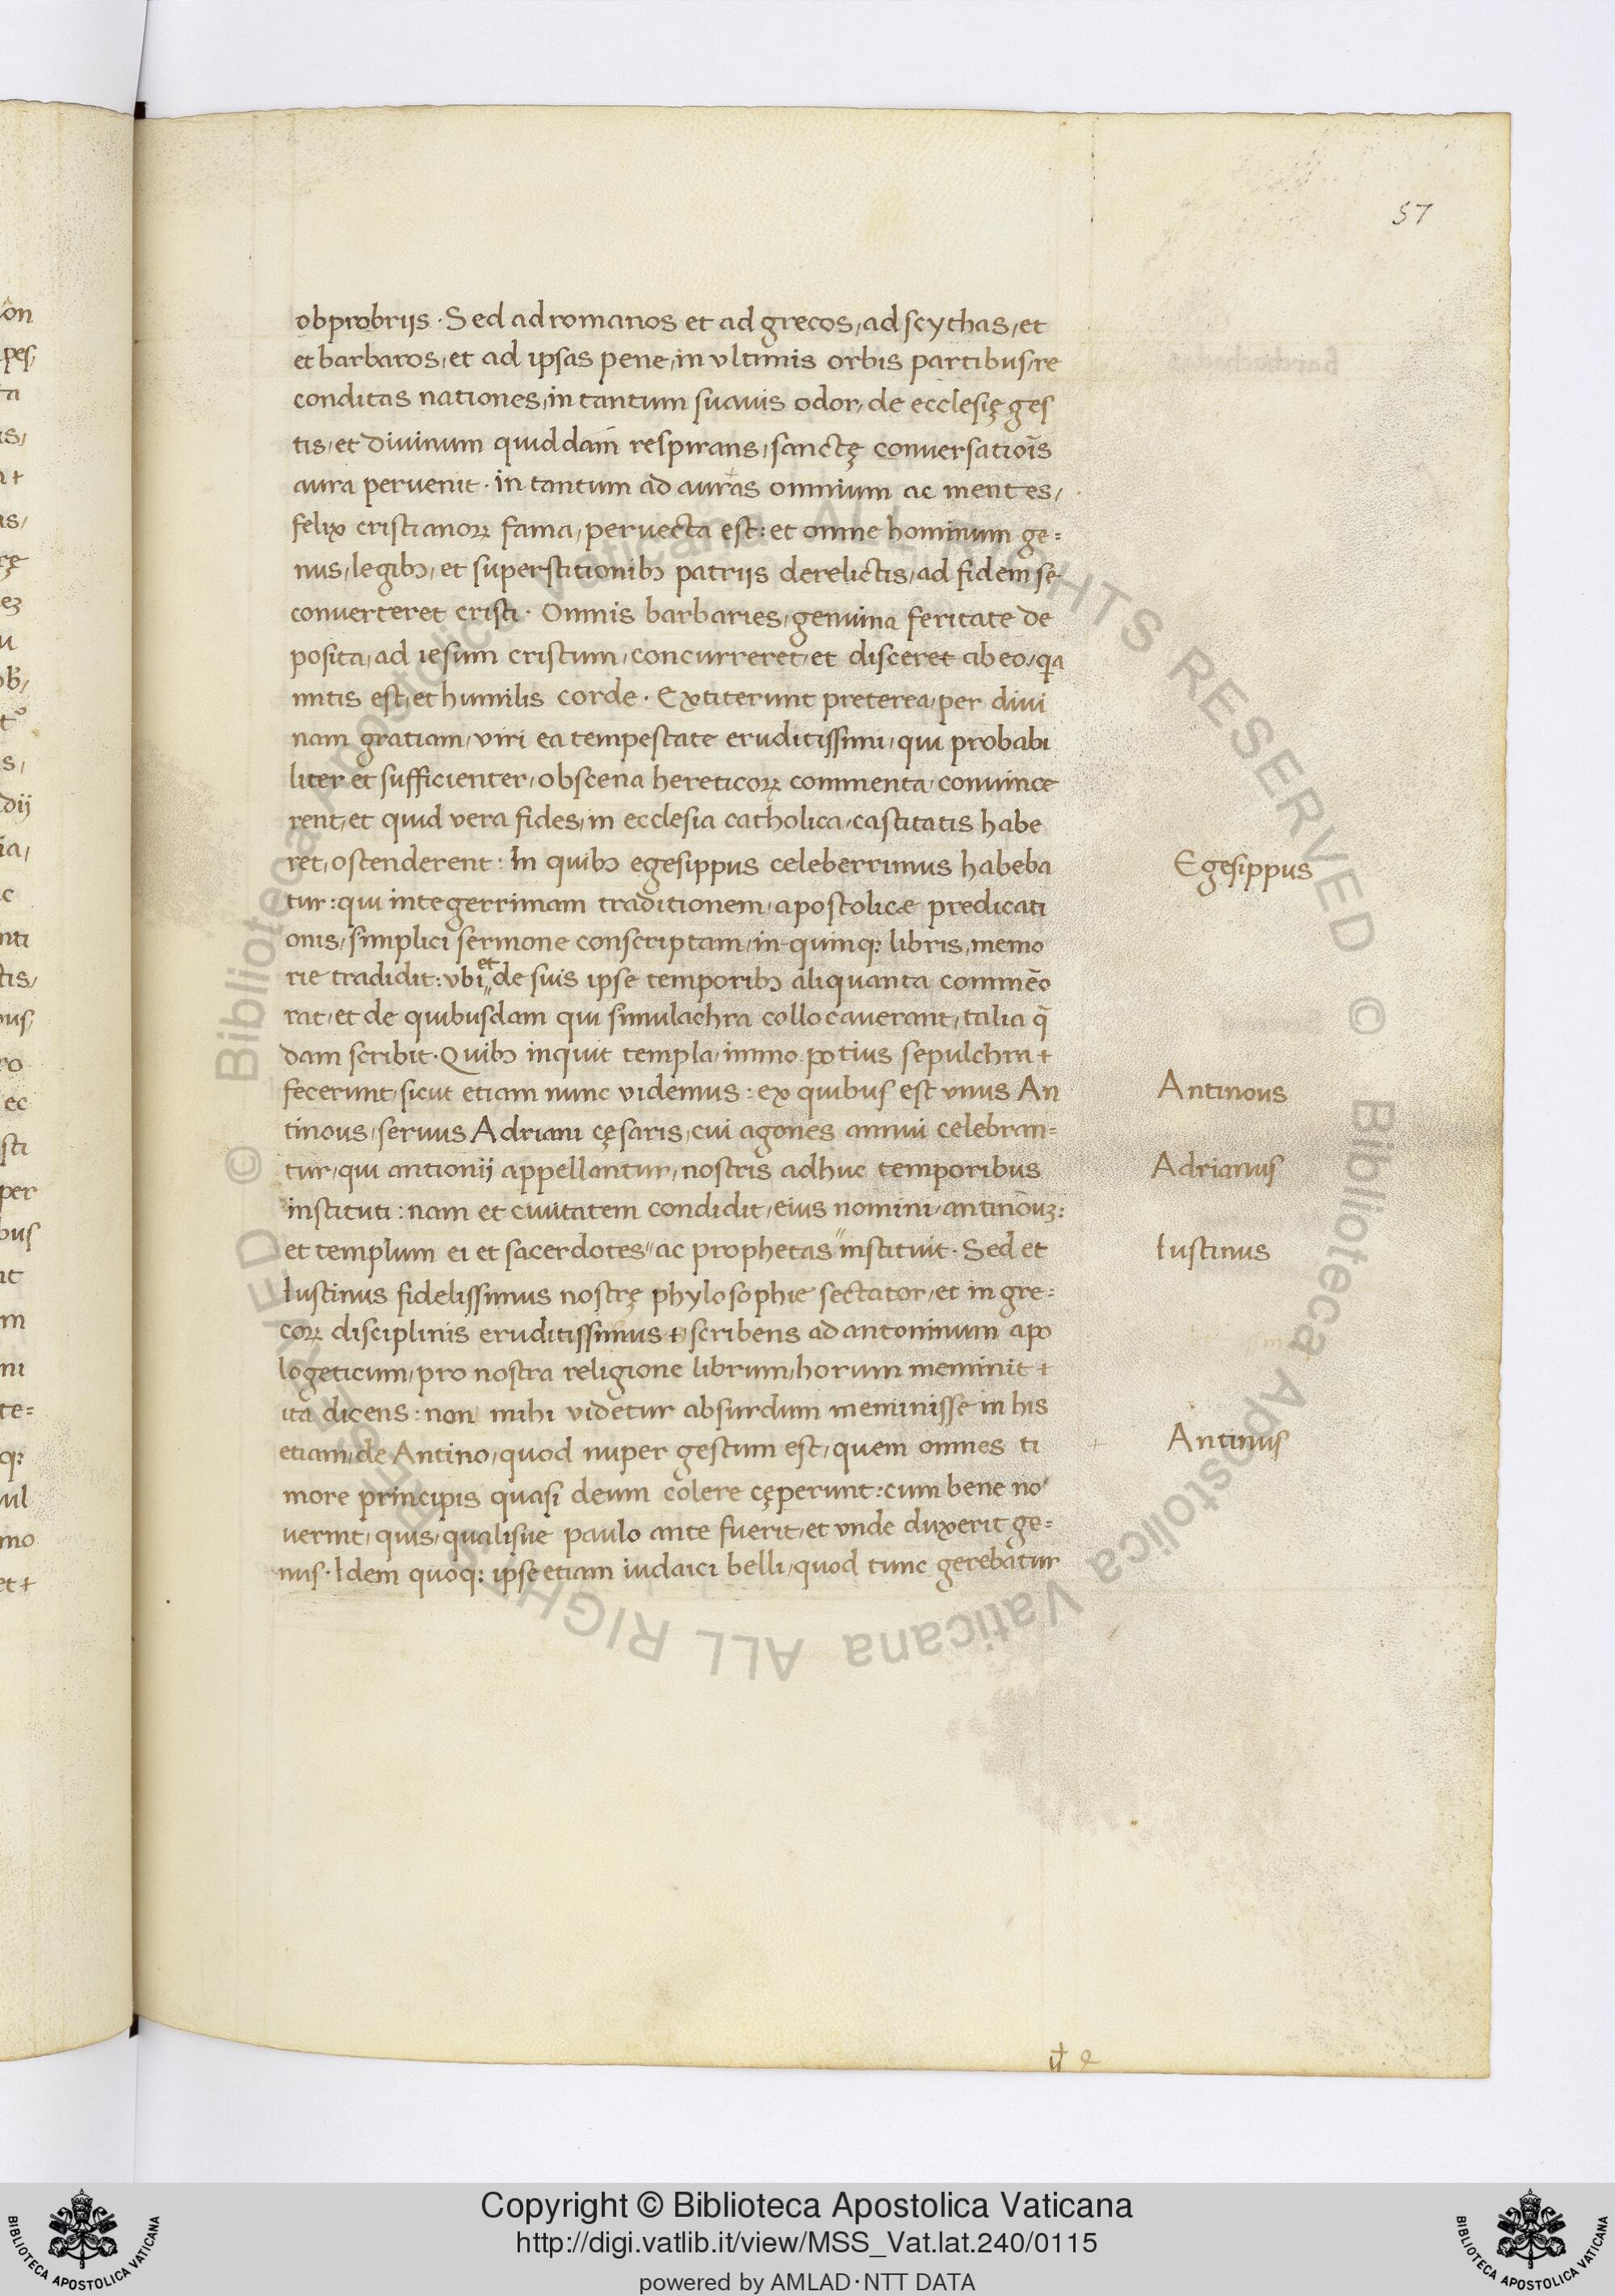 57
obprobrijs · Sed ad romanos et ad grecos, ad scythas, et
et barbaros, et ad ipsas pene, in vltimis orbis partibus, re
conditas nationes, in tantum suauis odor, de ecclesię ges
tis, et diuinum quiddam respirans, sanctę conuersatiōīs
aura peruenit · in tantum ad auras omnium ac mentes,
felix cristianoꝝ fama, peruecta est: et omne hominum ge=
nus, legibꝫ, et superstitionibꝫ patrijs derelictis, ad fidem se
conuerteret cristi · Omnis barbaries, genuina feritate de
posita, ad iesum cristum, concurreret, et disceret ab eo, qa
mitis est, et humilis corde · Extiterunt preterea, per diui
nam gratiam, viri ea tempestate eruditissimi, qui probabi
liter et sufficienter, obscena hereticoꝝ commenta, conuince
rent, et quid vera fides, in ecclesia catholica, castitatis habe
ret, ostenderent: In quibꝫ egesippus celeberrimus habeba
Egesippus
tur: qui integerrimam traditionem, apostolicæ predicati
onis, simplici sermone conscriptam, in quinqꝫ libris, memo
rie tradidit: vbi et de suis ipse temporibꝫ aliquanta commēo
rat, et de quibusdam qui simulachra collocauerant, talia q̄
dam scribit · Quibꝫ inquit templa, immo potius sepulchra +
fecerunt, sicut etiam nunc videmus: ex quibus est vnus An
Antinous
tinous, seruus Adriani cęsaris, cui agones annui celebran=
tur, qui antionij appellantur, nostris adhuc temporibus
Adrianus
instituti: nam et ciuitatem condidit, eius nomini, antinouꝫ:
et templum ei et sacerdotes" ac prophetas" instituit · Sed et
Iustinus
Iustinus fidelissimus nostrę phylosophie sectator, et in gre=
coꝝ disciplinis eruditissimus + scribens ad antoninum apo
logeticum, pro nostra religione librum, horum meminit +
ita dicens: non mihi videtur absurdum meminisse in his
etiam, de Antino, quod nuper gestum est, quem omnes ti
Antinus
more principis quasi deum colere cęperunt: cum bene no
uerint, quis, qualisue paulo ante fuerit, et vnde duxerit ge=
nus · Idem quoqꝫ ipse etiam iudaici belli, quod tunc gerebatur
© Biblioteca Apostolica Vaticana ALL RIGHTS RESERVED
© Biblioteca Apostolica Vaticana ALL RIGHTS RESERVED
Copyright © Biblioteca Apostolica Vaticana
http://digi.vatlib.it/view/MSS_Vat.lat.240/0115
powered by AMLAD·NTT DATA
BIBLIOTECA APOSTOLICA VATICANA
BIBLIOTECA APOSTOLICA VATICANA